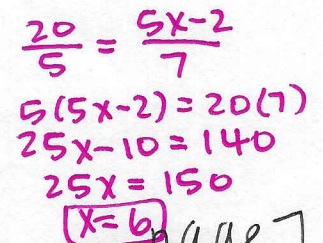 20/5 = 5x-2/7
5(5x-2) = 20(7)
25x-10 = 140
25x = 150
x=6